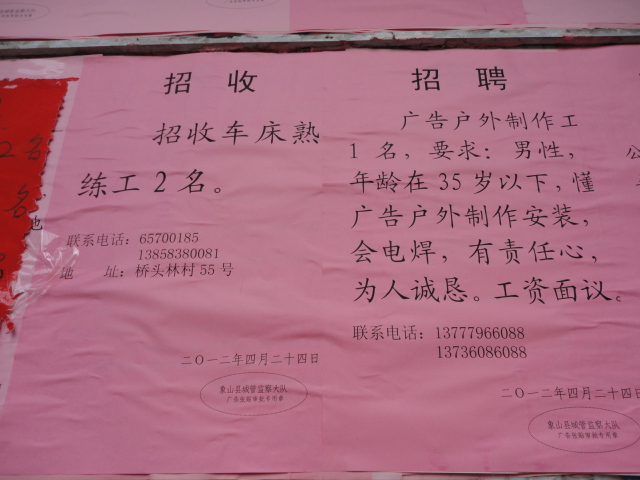 招收
招收车床熟
练工2名。
联系电话：65700185
13858380081
地 址：桥头林村55号
二〇一二年四月二十四日
象山县城管监察大队
广告张贴审批专用章
招聘
广告户外制作工
1名，要求：男性，
年龄在35岁以下，懂
广告户外制作安装，
会电焊，有责任心，
为人诚恳。工资面议。
联系电话：13777966088
13736086088
二〇一二年四月二十四日
象山县城管监察大队
广告张贴审批专用章
2名
名
地
公